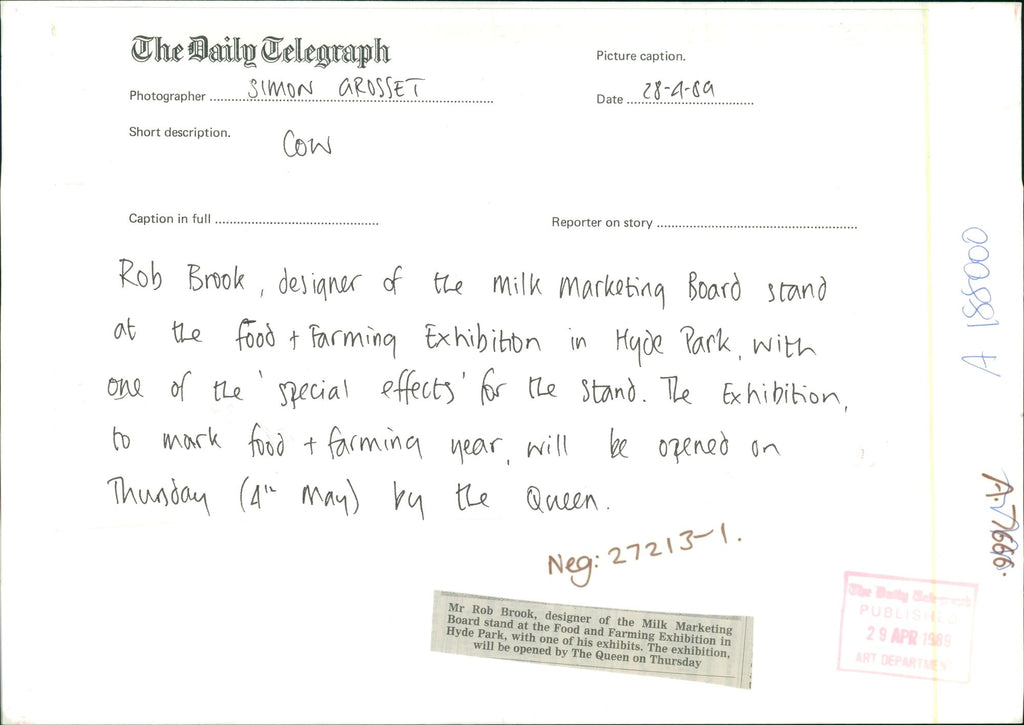 The Daily Telegraph
Picture caption.
Photographer SIMON GROSSET
Date 28-4-89
Short description.
COW
Caption in full
Reporter on story
Rob Brook, designer of the Milk Marketing Board stand
at the food + Farming Exhibition in Hyde Park, with
one of the 'special effects' for the stand. The Exhibition,
to mark food + farming year, will be opened on
Thursday (4th May) by the Queen.
Neg: 27213-1.
Mr Rob Brook, designer of the Milk Marketing
Board stand at the Food and Farming Exhibition in
Hyde Park, with one of his exhibits. The exhibition,
will be opened by The Queen on Thursday
The Daily Telegraph
PUBLISHED
29 APR 1989
ART DEPARTMENT
A 188000
A.7666.